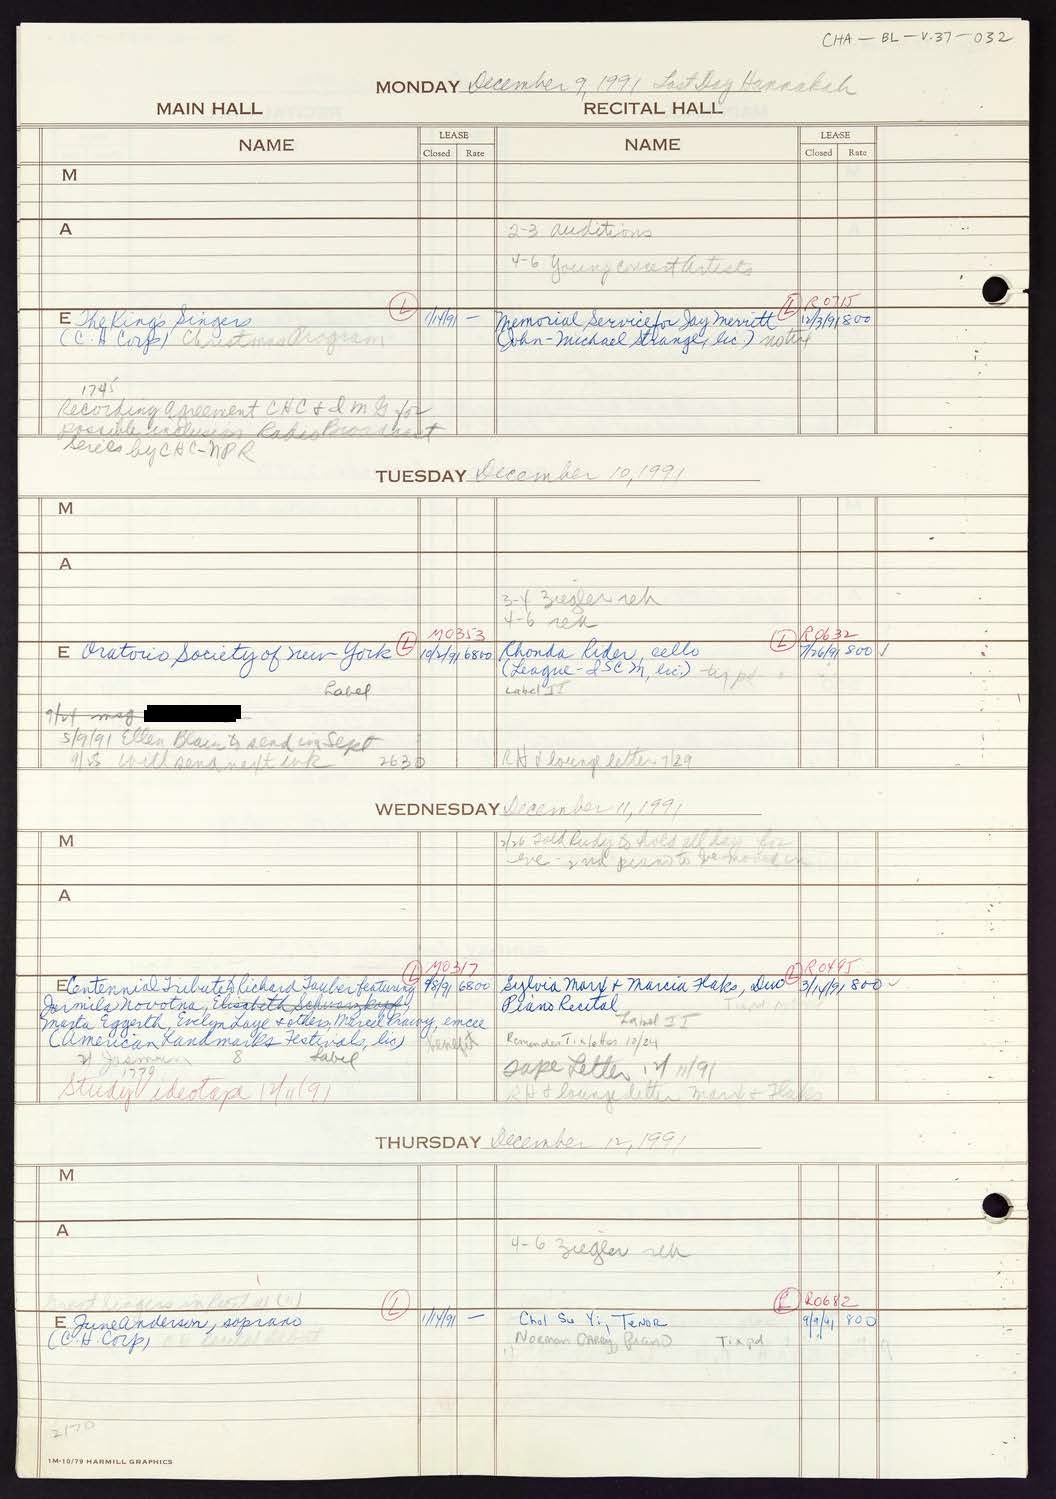 CHA - BL - V.37 - 032
MONDAY December 9, 1991 Last Day Hannakah
MAIN HALL RECITAL HALL
NAME LEASE Closed Rate NAME LEASE Closed Rate
M
A
2-3 auditions
4-6 Young Concert Artists
L L R0715
E The King's Singers 1/14/91 — Memorial Service for Jay Merritt 12/3/91 800
(C.H Corp) Christmas Program (John-Michael Strange, lic.)
1745
Recording Agreement CHC & IMG for
possible inclusion Radio Broadcast
Series by CHC-NPR
TUESDAY December 10, 1991
M
A
3-4 Ziegler reh
4-6 reh
L M0353 L R0632
E Oratorio Society of New York 10/2/91 6800 Rhonda Rider, cello 7/26/91 800 ✓
(League-ISCM, lic.) tix pd
Label Label II
9/24 msg
5/9/91 Ellen Blair to send in Sept
9/25 will send next wk 2630 RH & lounge letter 7/29
WEDNESDAY December 11, 1991
M 2/26 Told Rudy to hold all day for
eve - 2nd piano to be moved in
A
L M0317 L R0495
E Centennial Tribute to Richard Tauber featuring 4/8/91 6800 Sylvia Marx & Marcia Flaks, Duo 3/14/91 800 ✓
Jarmila Novotna, Elisabeth Schwarzkopf, Piano Recital
Marta Eggerth, Evelyn Laye & others, Marcel Prawy, emcee Label II
(American Landmarks Festivals, lic) benefit Reminder Tix letter 10/24
8 Label
1779 Tape Letter 12/11/91
Study Videotape 12/11/91 RH & lounge letter Marx & Flaks
THURSDAY December 12, 1991
M
A
4-6 Ziegler reh
L L R0682
E June Anderson, soprano 1/14/91 — Chol Su Yi, Tenor 9/9/91 800
(C.H. Corp) Norman Carey, Piano Tix pd
2170
1M-10/79 HARMILL GRAPHICS